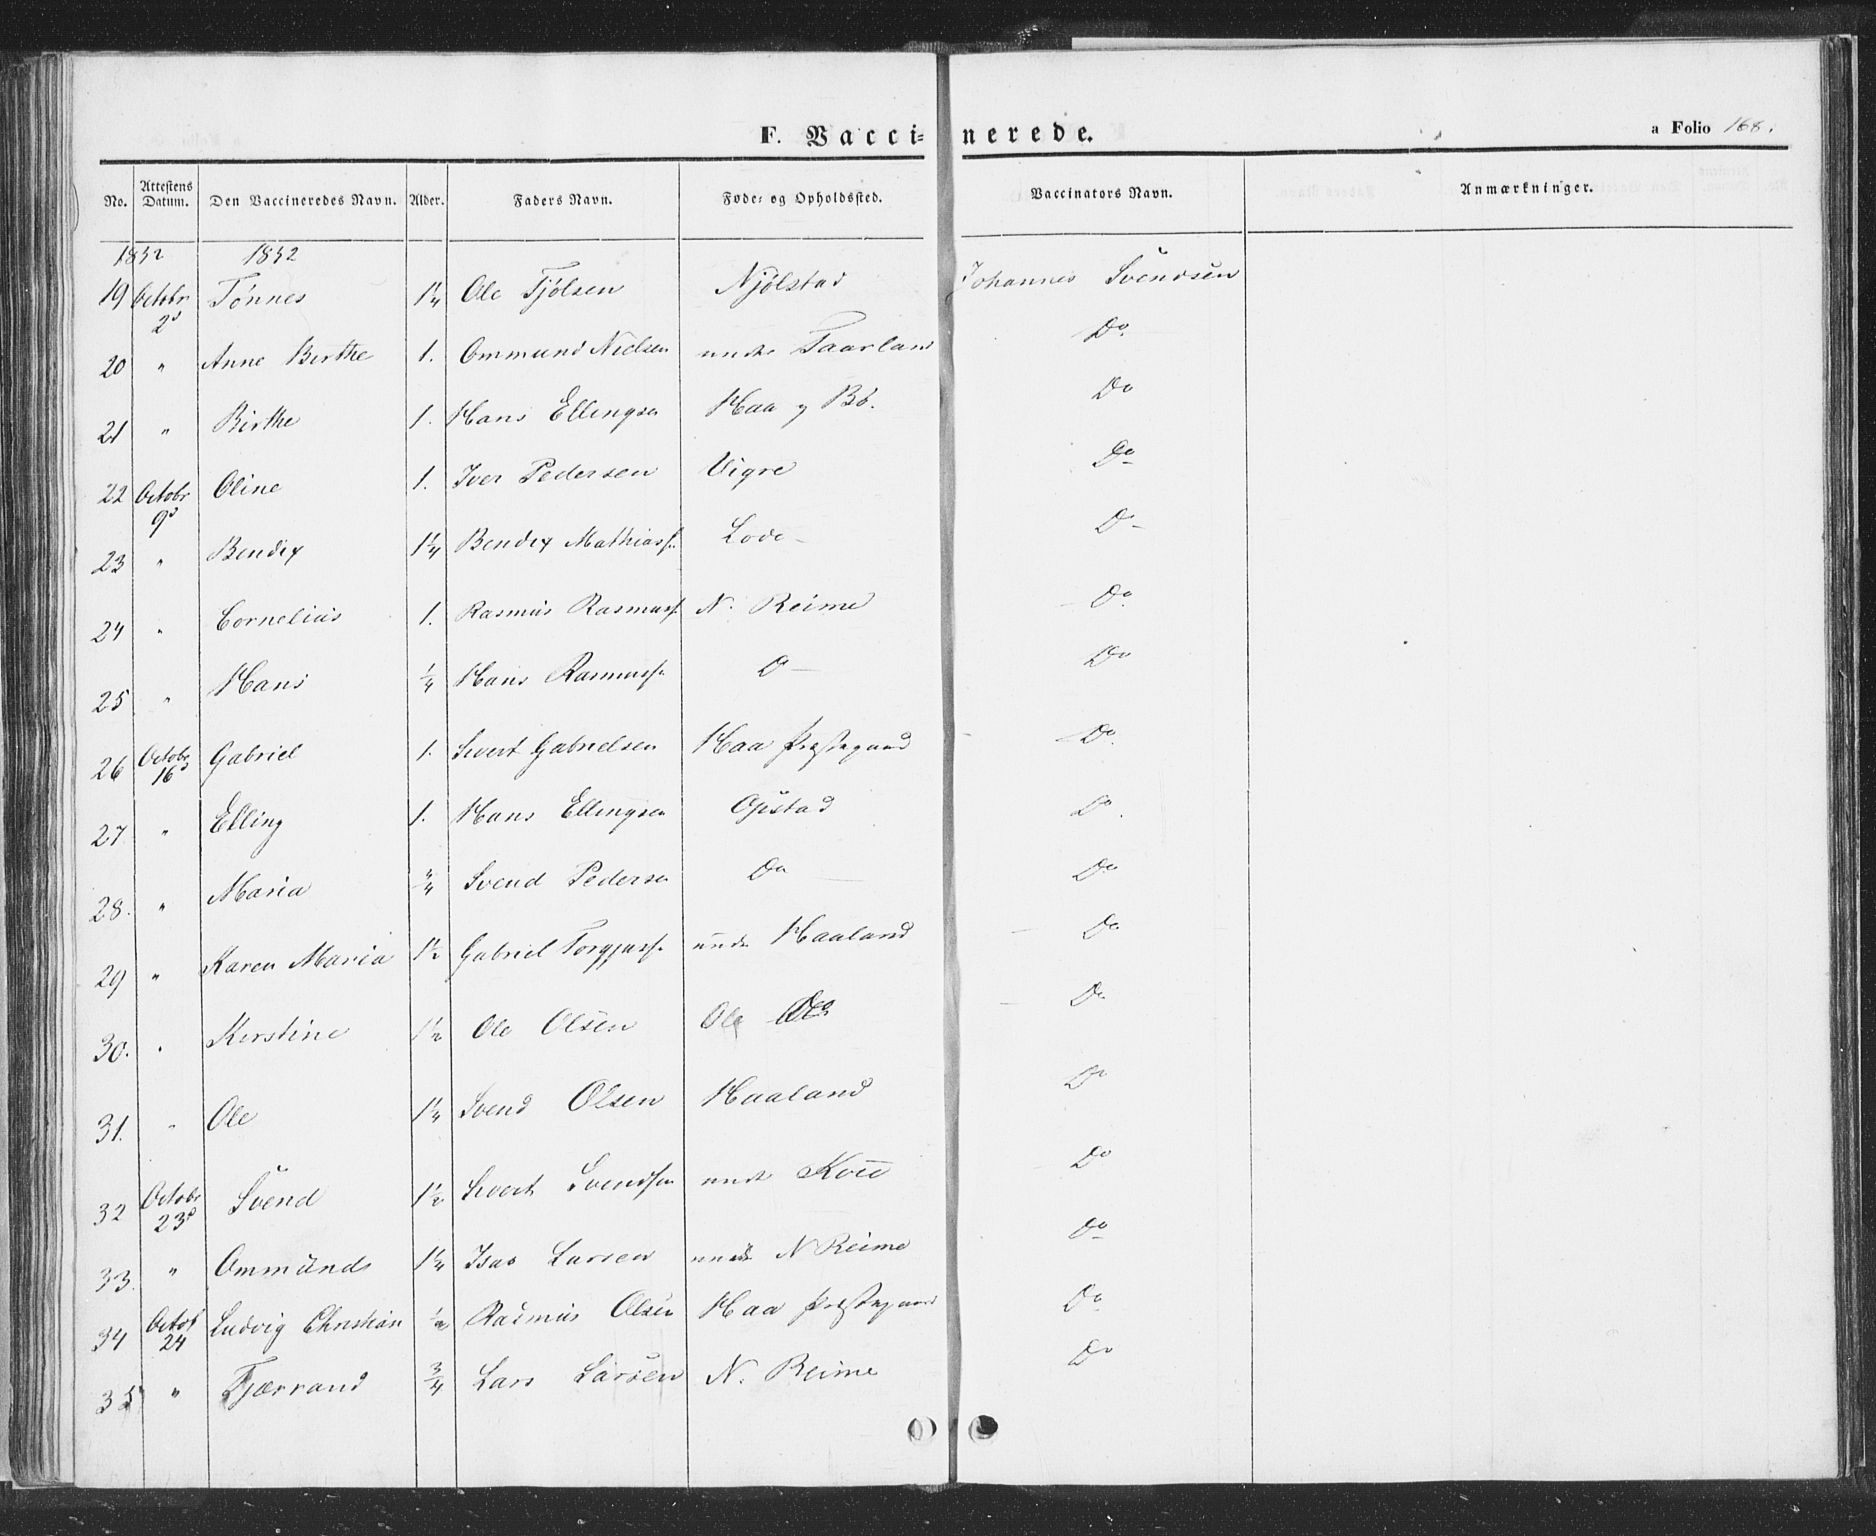 F. Vaccinerede.
a Folio 168.
No. Attestens Datum. Den Vaccineredes Navn. Alder. Faders Navn. Føde- og Opholdssted. Vaccinators Navn. Anmærkninger.
1852 1852
19 Octobr 2d Tönnes 1 1/4 Ole Tjölsen Njölstad Johannes Svendsen
20 " Anne Birthe 1. Ommund Nielsen unde Taarland Do
21 " Birthe 1. Hans Ellingsen Haa y Bö. Do
22 Octobr 9d Oline 1. Iver Pedersen Vigre Do
23 " Bendix 1 1/4 Bendix Mathiass. Lode D
24 " Cornelius 1. Rasmus Rasmuss. N. Reime Do
25 " Hans 1/4 Hans Rasmuss. D Do
26 Octobr 16d Gabriel 1. Sivert Gabrielsen Haa Præstegaard Do
27 " Elling 1. Hans Ellingsen Opstad Do
28. " Maria 3/4 Svend Pedersen Do Do
29 " Karen Maria 1 1/2 Gabriel Torgjuss. unde Haaland Do
30. " Kirstine 1 1/2 Ole Olsen Do Do
31. " Ole 1 1/4 Svend Olsen Haaland Do
32 Octobr 23d Svend 1 1/2 Sivert Svendsen unde Kvie Do
33. " Ommund 1 1/4 Isac Larsen unde N Reime Do
34 Octob 24 Ludvig Christian 1/2 Rasmus Olsen Haa Præstegaard Do
35 " Tjærrand 3/4 Lars Larsen N. Reime Do